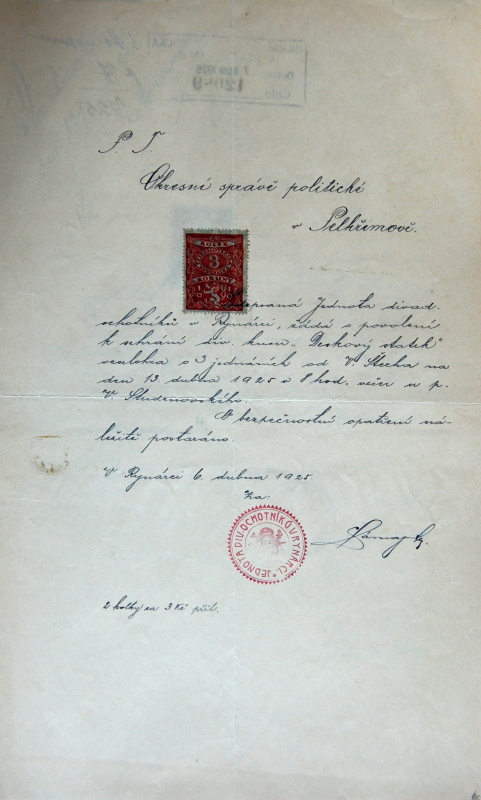 P. T.
Okresní správě politické
v Pelhřimově.
KOLEK
3
KORUNY
5
Jednota divad.
ochotníků v Rynárci, žádá o povolení
k sehrání div. kusu „Deskový statek"
veselohra o 3 jednáních od V. Štecha na
den 13. dubna 1925 o 8 hod. večer u p.
V. Studenovského.
O bezpečnostní opatření ná-
ležitě postaráno.
V Rynárci 6. dubna 1925.
Za:
JEDNOTA DIV. OCHOTNÍKŮ V RYNÁRCI.
2 kolky za 3 Kč příl.